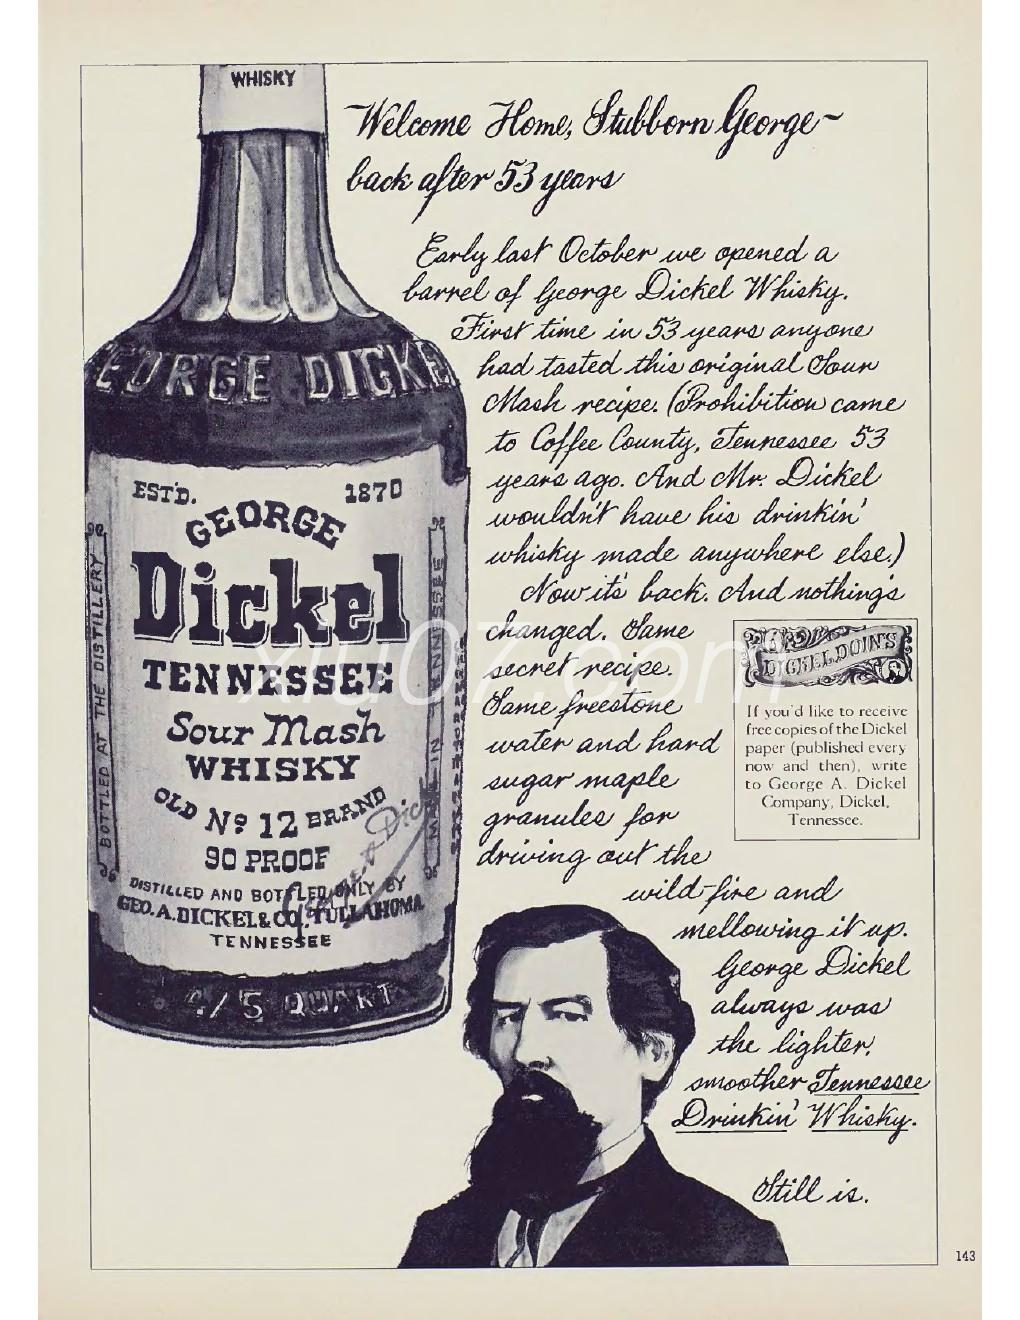 WHISKY
Welcome Home, Stubborn George~
back after 53 years
Early last October we opened a
barrel of George Dickel Whisky.
First time in 53 years anyone
had tasted this original Sour
Mash recipe. (Prohibition came
to Coffee County, Tennessee 53
years ago. And Mr. Dickel
wouldn't have his drinkin'
whisky made anywhere else.)
Now it's back. And nothing's
changed. Same
secret recipe.
Same freestone
water and hard
sugar maple
granules for
driving out the
wild-fire and
mellowing it up.
George Dickel
always was
the lighter,
smoother Tennessee
Drinkin' Whisky.
Still is.
DICKEL DOIN'S
If you'd like to receive
free copies of the Dickel
paper (published every
now and then), write
to George A. Dickel
Company, Dickel,
Tennessee.
EORGE DICKE
EST'D. 1870
GEORGE
Dickel
TENNESSEE
Sour Mash
WHISKY
OLD No 12 BRAND
90 PROOF
DISTILLED AND BOTTLED ONLY BY
GEO. A. DICKEL & CO., TULLAHOMA
TENNESSEE
BOTTLED AT THE DISTILLERY
MADE IN TENNESSEE
4/5 QUART
xiu07.com
143